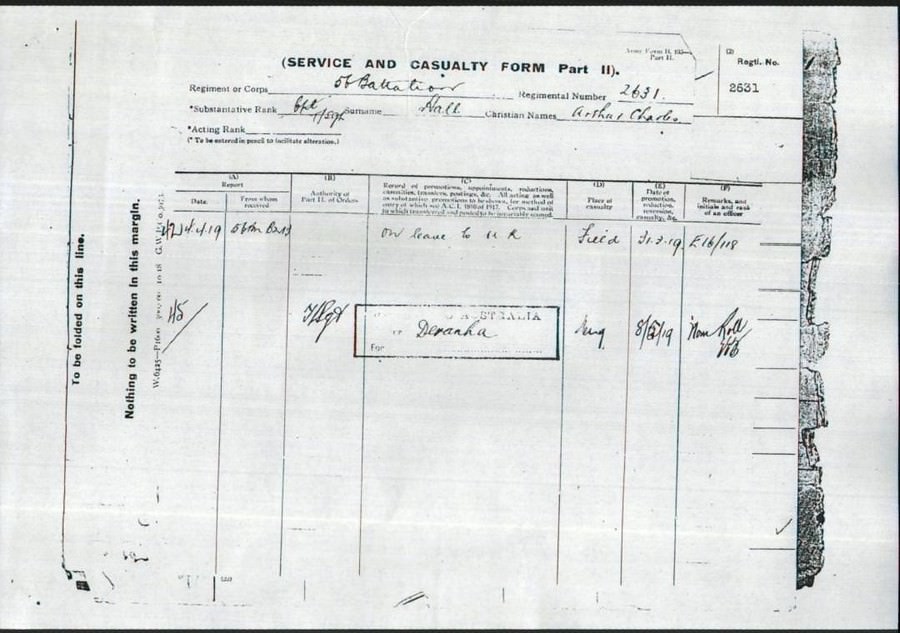 Army Form B. 103
Part II.
(SERVICE AND CASUALTY FORM Part II).
(2)
Regtl. No.
2631
Regiment or Corps 56 Battalion Regimental Number 2631.
*Substantative Rank Cpl T/Sgt Surname Hall Christian Names Arthur Charles
*Acting Rank
(* To be entered in pencil to facilitate alteration.)
(A) Report
Date.
From whom received
(B)
Authority of Part II. of Orders
(C)
Record of promotions, appointments, reductions, casualties, transfers, postings, &c. All acting as well as substantive promotions to be shown, for method of entry of which see A.C.I. 1816 of 1917. Corps and unit to which transferred and posted to be invariably stated.
(D)
Place of casualty
(E)
Date of promotion, reduction, reversion, casualty, &c.
(F)
Remarks, and initials and rank of an officer
4.4.19 56th Batt on leave to U K Field 31.3.19 E16/118
T/Sgt
AUSTRALIA
Devanha
For
Eng 8/5/19 Nom Roll
To be folded on this line.
Nothing to be written in this margin.